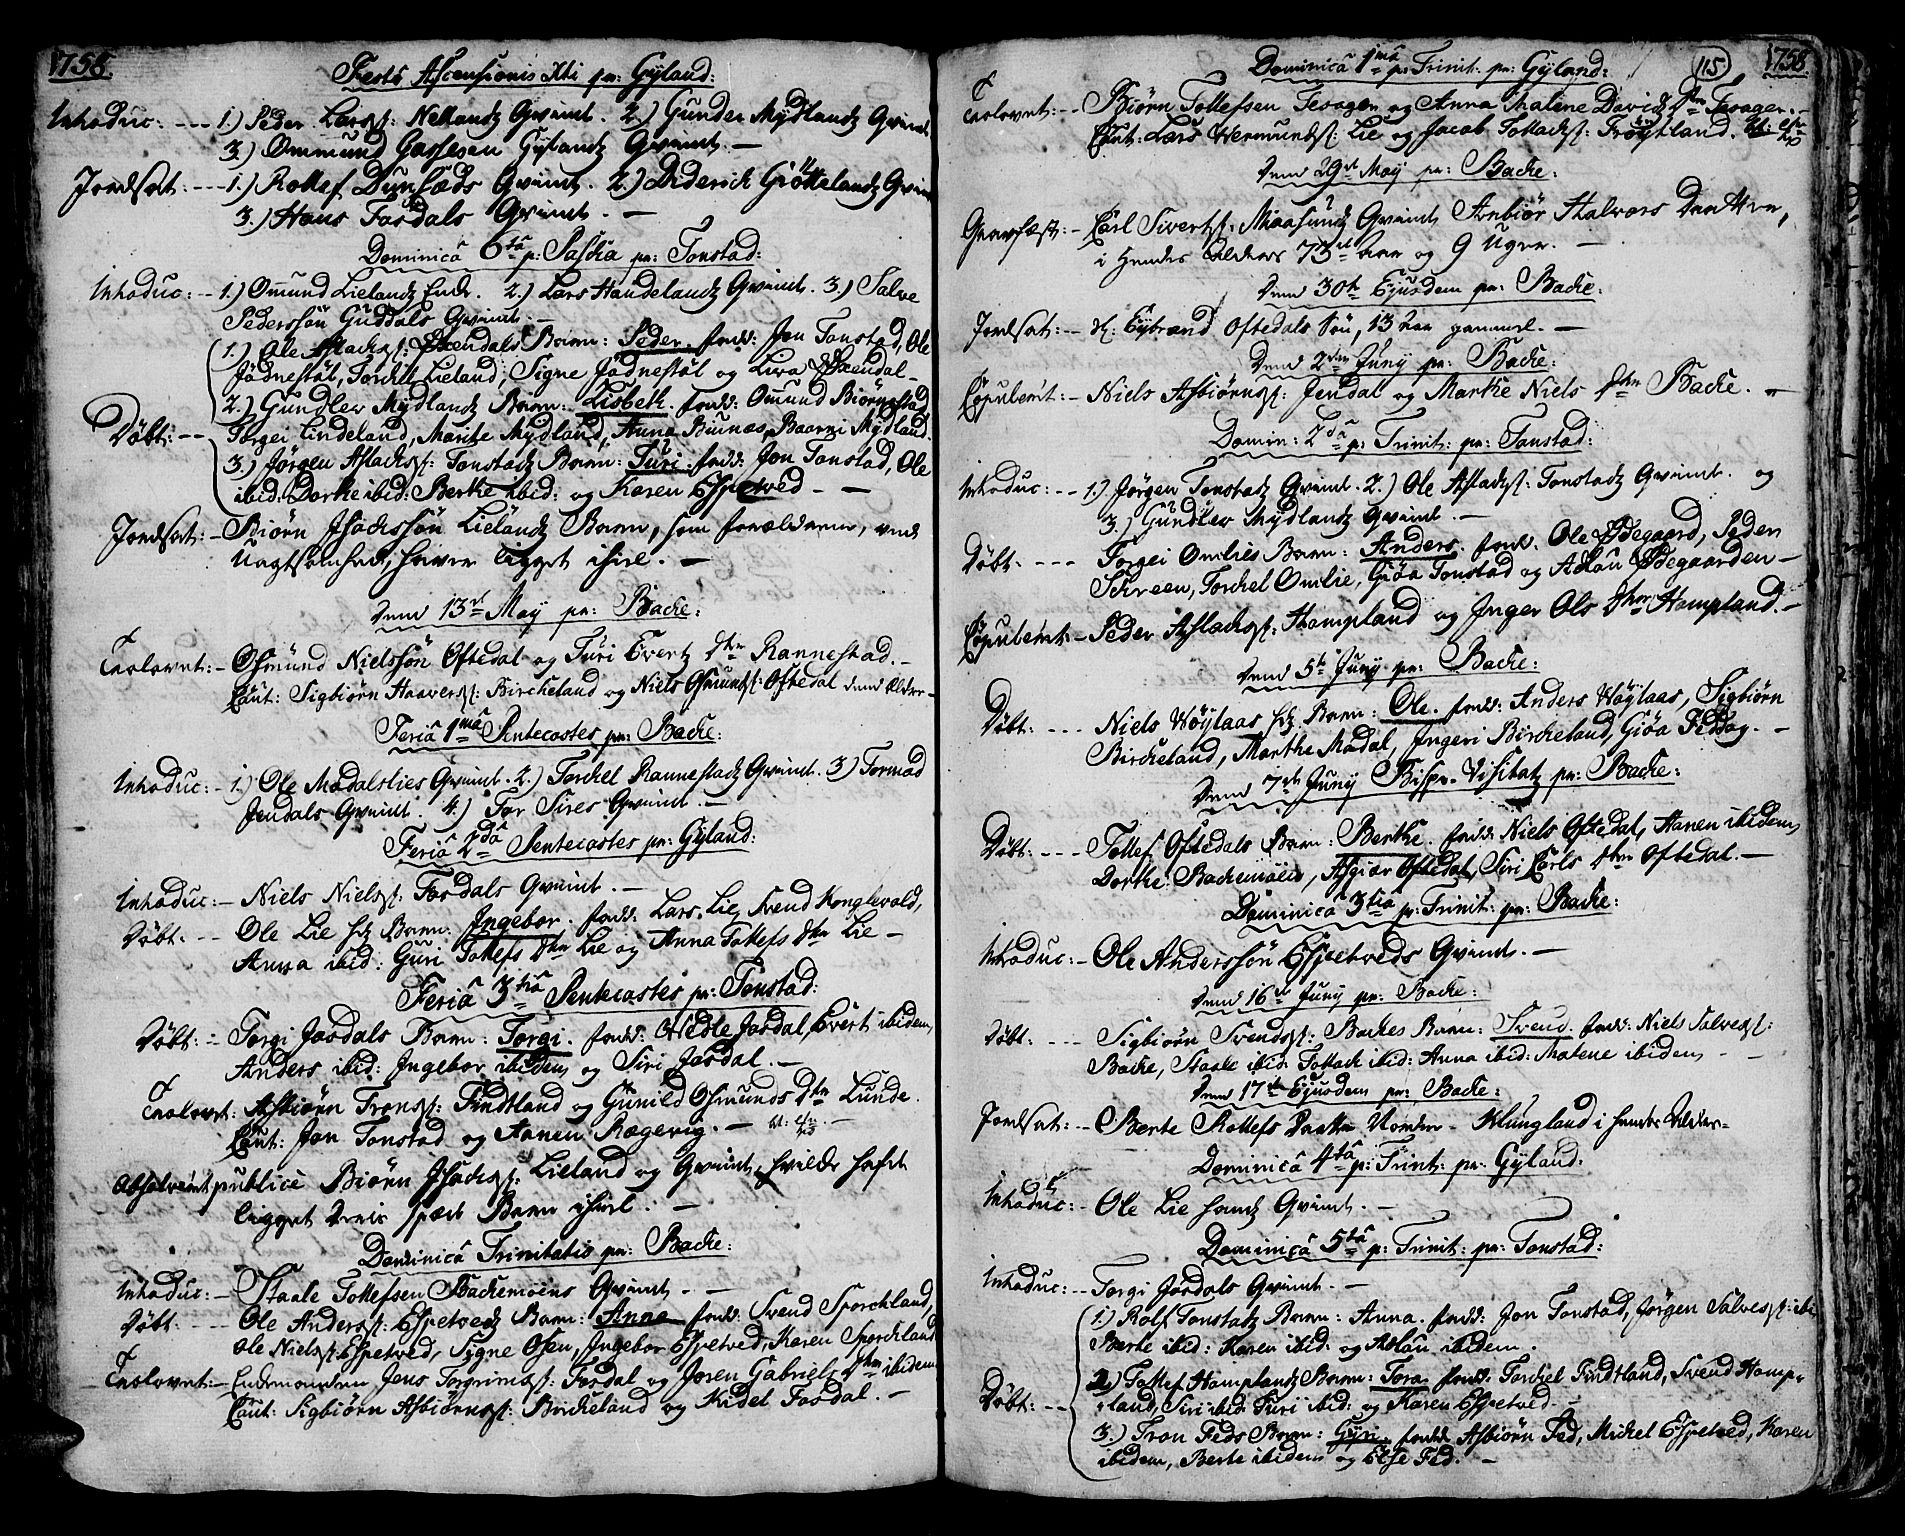 1758.
Festo Ascensionis Xti pr: Gyland:
Introduc: --- 1.) Peder Larss: Netlandz Qvinde. 2.) Gunder Mydlandz Qvinde
3.) Ommund Gassesen Gylandz Qvinde. —
Jordsat: --- 1.) Rollef Dunsæds Qvinde. 2.) Diderich Giøttelandz Qvinde
3.) Hans Fasdals Qvinde. —
Dominicâ 6tâ p: Pascha pr: Tonstad:
Introduc: -- 1.) Omund Lielandz Qvinde. 2.) Lars Haudelandz Qvinde. 3.) Salve
Pederssøn Guddals Qvinde. —
1.) Ole Aslachs: Skendals Barn: Peder. fadd: Jon Tonstad, Ole
Jødnestøl, Torchel Lieland, Signe Jødnestøl og Liva Skendal —
2.) Gundlev Mydlandz Barn: Lisbeth. fadd: Omund Biørnestad
Døbt: -- Torgei Lindeland, Marite Mydland, Anna Buinæs, Baarni Mydland.
3.) Jørgen Aslachs: Tonstadz Barn: Turi. fadd: Jon Tonstad, Ole
ibid: Dorthe ibid: Berthe ibid: og Karen Espetved — —
Jordsat: - Biørn Isachssøn Lielandz Barn, som forældrene, ved
Uagtsomhed, haver ligget ihiel. —
Dend 13de May pr: Backe:
Trolovet: - Osmund Nielssøn Oftedal og Turi Evertz Dtr Rannestad. —
Caut: Sigbiørn Haavers: Bircheland og Niels Osmunds: Oftedal dend Ældre —
Feria 1mâ Pentecostes pr: Backe:
Introduc: - 1.) Ole Modalslies Qvinde. 2.) Torchel Rannestadz Qvinde. 3.) Tormod
Jendals Qvinde. 4.) Tor Sires Qvinde. —
Feriâ 2dâ Pentecostes pr: Gyland:
Introduc: - Niels Niels: Fasdals Qvinde. —
Døbt: -- Ole Lie hs Barn: Ingebor. fadd: Lars Lie, Svend Konglevold,
Anna ibid: Guri Tollefs Dtr Lie og Anna Tollefs Dtr Lie —
Feriâ 3tiâ Pentecostes pr: Tonstad:
Døbt: -- Torgi Josdals Barn: Torgi. fadd: Vedle Josdal, Evert ibidem,
Anders ibid: Ingebor ibidem og Siri Josdal. —
Trolovet: Asbiørn Trons: Findtland og Gunild Osmunds Dtr Lunde.
Caut: Jon Tonstad og Aanen Rægevig. —
Absolverit publice Biørn Isachs: Lieland og Qvinde, hvilde hafde
ligget deris spæde Barn ihiel. —
Dominicâ Trinitatis pr: Backe:
Introduc: - Staale Tollefsen Backemoens Qvinde — —
Døbt: --- Ole Anders: Espetvedz Barn: Anne. fadd: Svend Sporchland,
Ole Niels: Espetved, Signe Osen, Ingebor Espetved, Karen Sporchland
Trolovet: - Enkemanden Jens Torgrims: Fasdal og Joren Gabriels Dtr ibidem
Caut: Sigbiørn Asbiørns: Bircheland og Kidel Fasdal. —
115 1758
Dominicâ 1mâ p: Trinit: pr: Gyland:
Trolovet: -- Biørn Tollefsen Fesager og Anna Malene Davidz Dtr Fesager. —
Caut: Lars Vermunds: Lie og Jacob Tollachs: Frøytland.
Dend 29de May pr: Backe:
Gravfæst: - Carl Siverts: Maasundz Qvinde Anbiør Halvors Datter,
i Hendes Alders 73de Aar og 9 Uger. —
Dend 30te Ejusdem pr: Backe:
Jordsat: -- Eybrand Oftedals Søn, 13 Aar gammel. —
Dend 2den Juny pr: Backe:
Copulerit: - Niels Asbiørns: Jendal og Marthe Niels Dtr Backe. —
Domin: 2dâ p: Trinit: pr: Tonstad:
Introduc: -- 1.) Jørgen Tonstadz Qvinde. 2.) Ole Aslachs: Tonstadz Qvinde. og
3.) Gundlev Mydlandz Qvinde. —
Døbt: --- Torgei Omlies Barn: Anders. fadd: Ole Ødegaard, Peder
Schreen, Torchel Omlie, Giøa Tonstad og Aslau Ødegaarden —
Copulerit: - Peder Aslachs: Hampland og Inger Ols Dtr Hampland. —
Dend 5te Juny pr: Backe:
Døbt: --- Niels Høylaas hs Barn: Ole. fadd: Anders Høylaas, Sigbiørn
Bircheland, Marthe Modal, Ingeri Bircheland, Giøa Fedog. —
Dend 7de Juny Bispe-Visitatz pr: Backe:
Døbt: --- Tollef Oftedals Barn: Berthe. fadd: Niels Oftedal, Aanen ibidem,
Dorthe Backemoen, Asgier Oftedal, Siri Carls Dtr Oftedal. —
Dominicâ 3tiâ p: Trinit: pr: Backe:
Introduc: - Ole Anderssøn Espetveds Qvinde. —
Dend 16de Juny pr: Backe:
Døbt: --- Sigbiørn Svends: Backes Barn: Svend. fadd: Niels Salves:
Backe, Staale ibid: Tollach ibid: Anna ibid: Malene ibidem — —
Dend 17de Ejusdem pr: Backe:
Jordsat: -- Berte Rollefs Datter Norder-Klungland i hendes Alder-
Dominicâ 4tâ p: Trinit: pr: Gyland:
Introduc: - Ole Lie hands Qvinde. —
Dominicâ 5tâ p: Trinit: pr: Tonstad:
Introduc: -- Torgi Josdals Qvinde. —
1.) Rolf Tonstadz Barn: Anna. fadd: Jon Tonstad, Jørgen Salves: ibid
Berte ibid: Karen ibid: og Aslau ibidem.
2.) Tollef Hamplandz Barn: Tora. fadd: Torchel Findtland, Svend Hamp-
Døbt: -- land, Siri ibid: Turi ibid: og Karen Espetved. —
3.) Tron Feds Barn: Gyri. fadd: Asbiørn Fed, Michel Espetved, Karen
ibidem, Berte ibidem og Else Fed. —